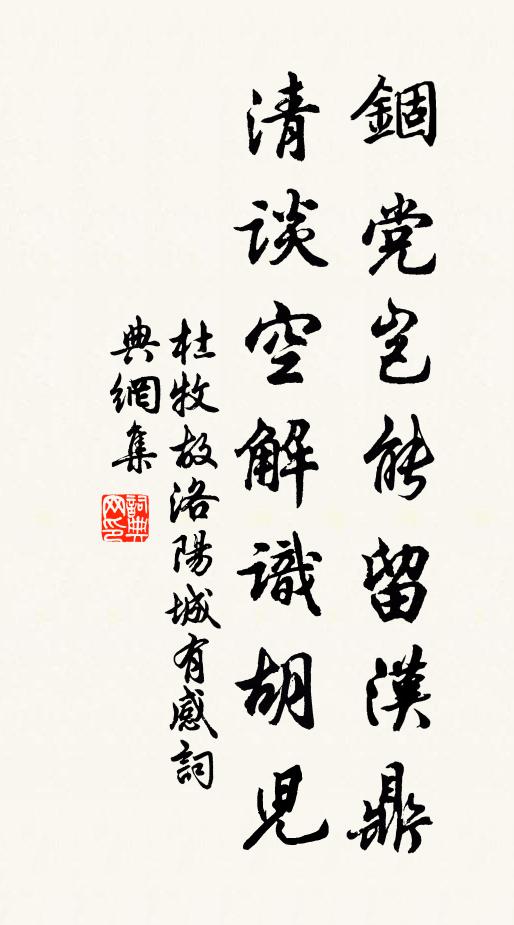 錮党岂能留漢鼎
清谈空解識胡児
杜牧故洛陽城有感詞
典網集
詞典
网印